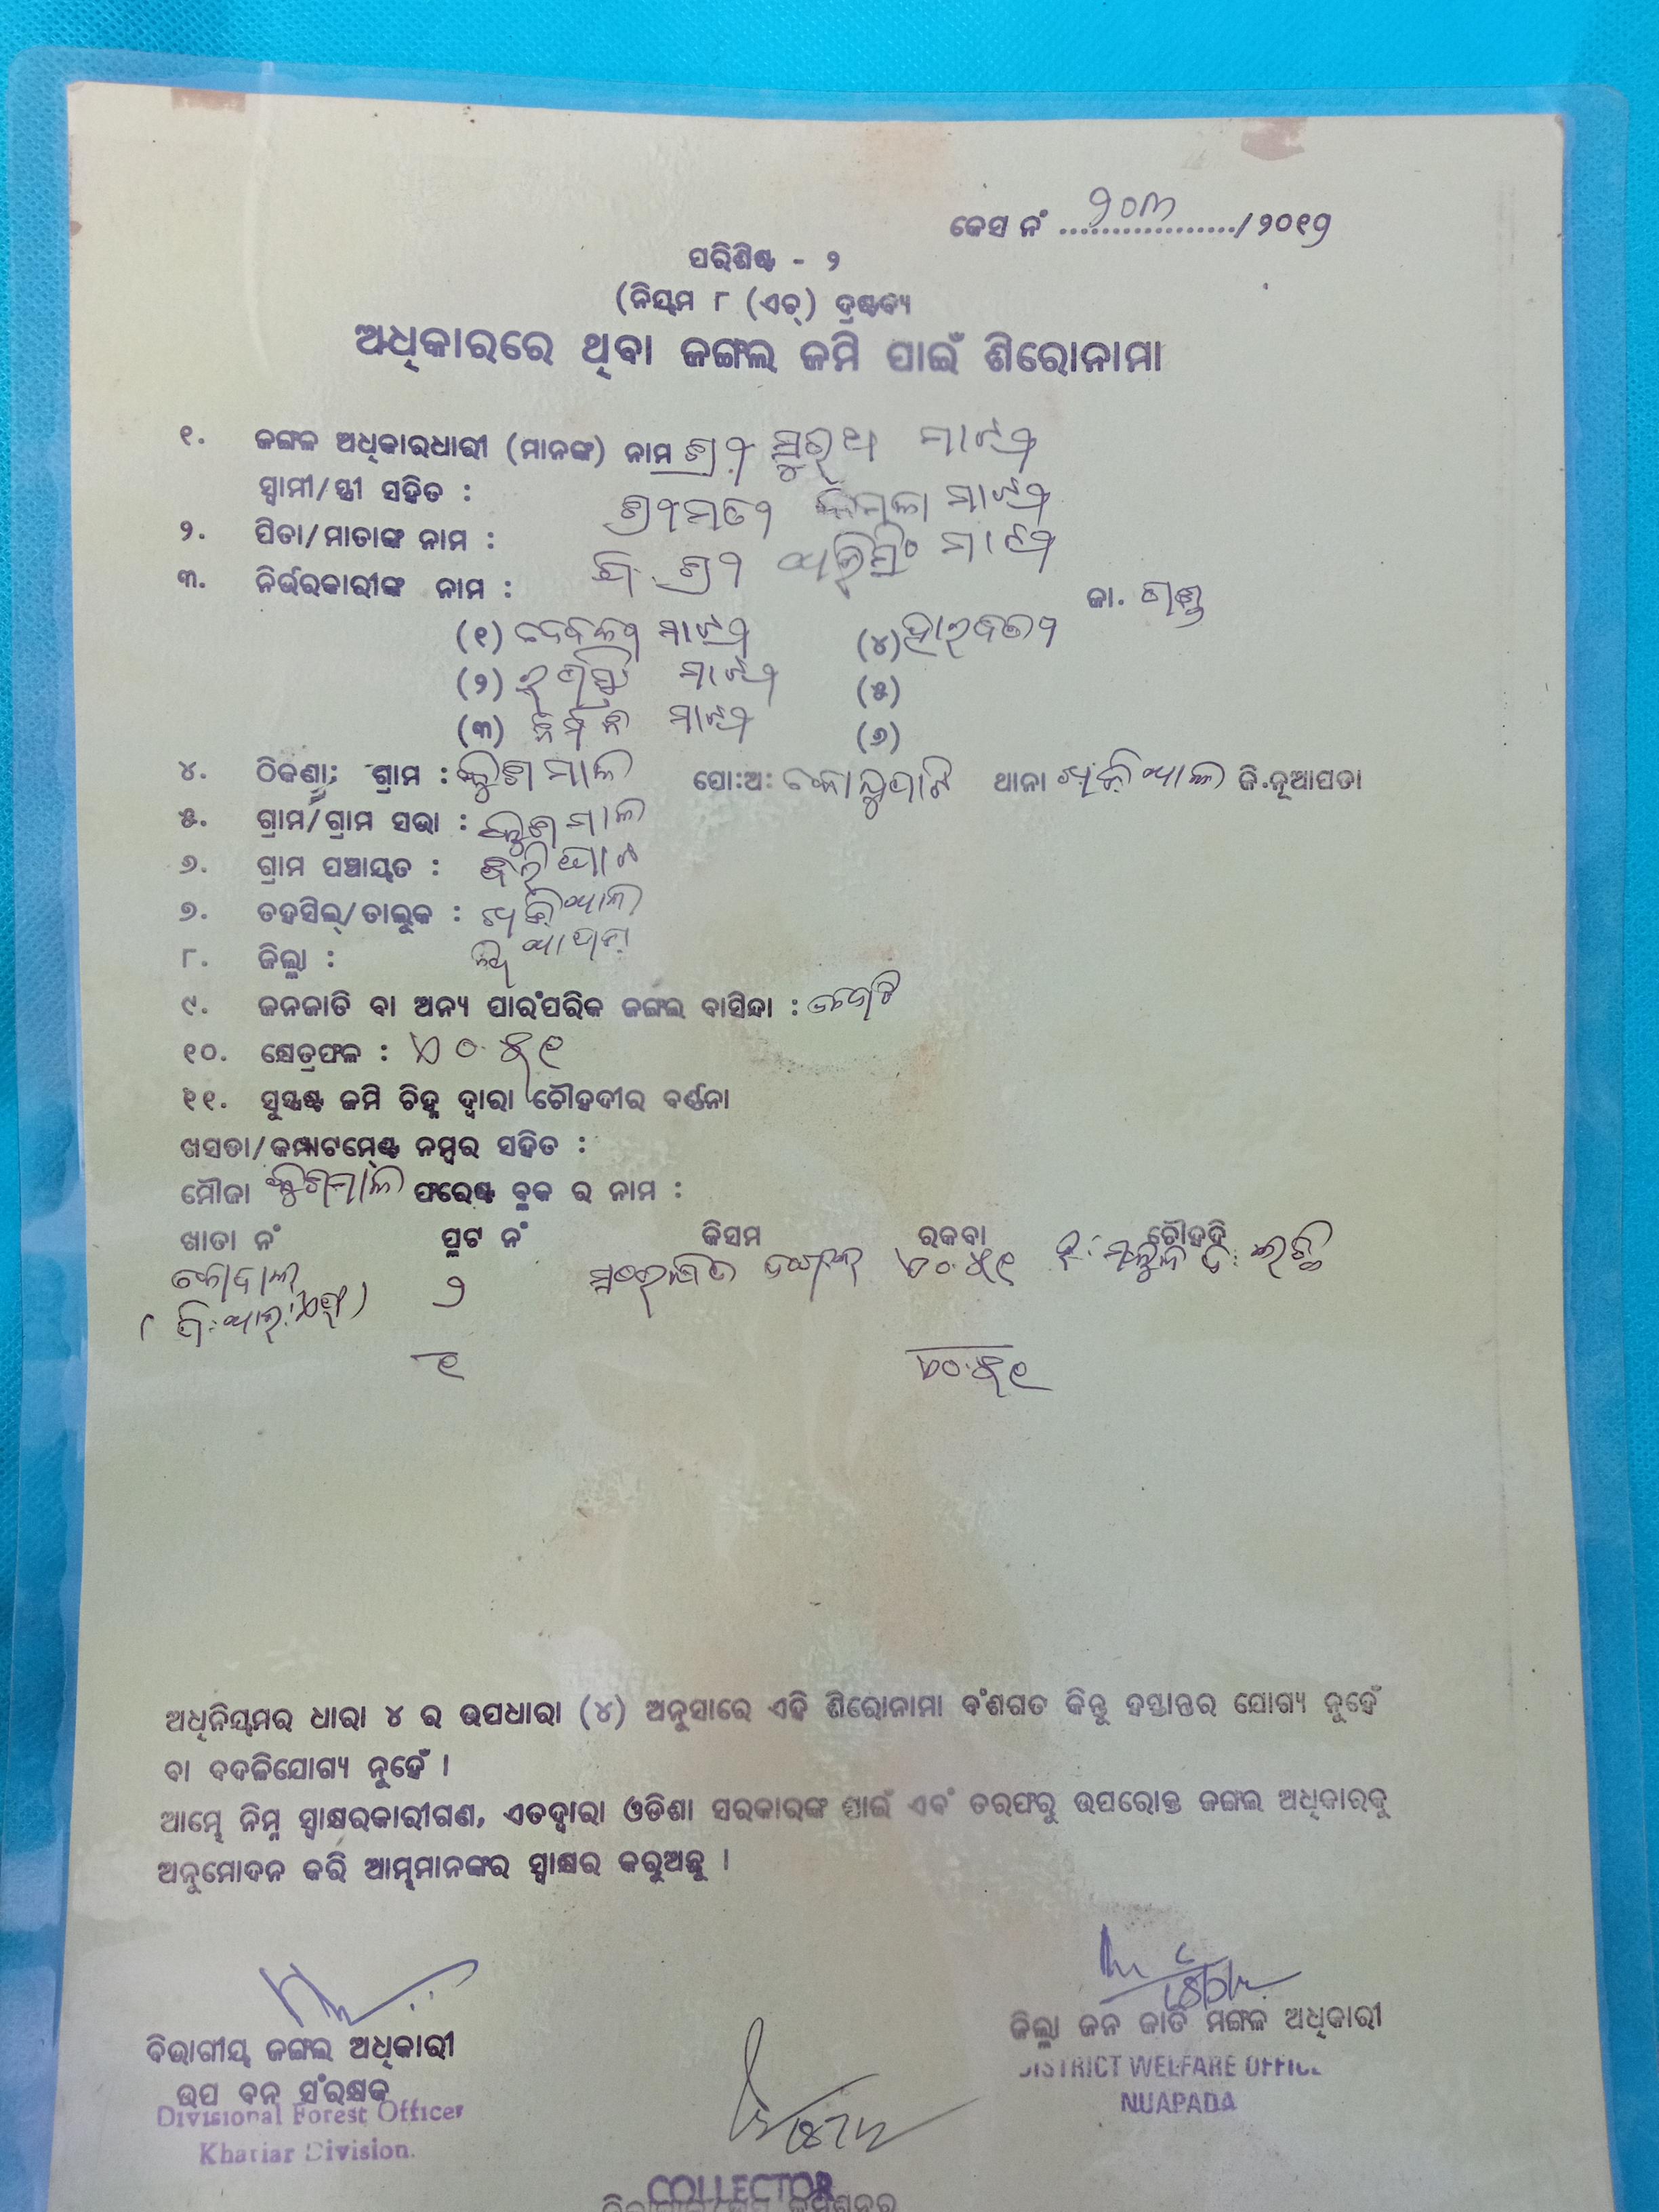 କେସ ନଂ ୨୦୩ /୨୦୧୨
ପରିଶିଷ୍ଟ - ୨
(ନିୟମ ୮ (ଏଚ୍) ଦ୍ରଷ୍ଟବ୍ୟ
ଅଧିକାରରେ ଥିବା ଜଙ୍ଗଲ ଜମି ପାଇଁ ଶିରୋନାମା
୧. ଜଙ୍ଗଳ ଅଧିକାରଧାରୀ (ମାନଙ୍କ) ନାମ ଶ୍ରୀ ସୁରଥ ମାଝୀ
ସ୍ଵାମୀ/ସ୍ତ୍ରୀ ସହିତ : ଶ୍ରୀମତୀ ମାଝୀ
୨. ପିତା/ମାତାଙ୍କ ନାମ : ପି. ଶ୍ରୀ ମାଝୀ
୩. ନିର୍ଭରକାରୀଙ୍କ ନାମ : ଜା. ଗଣ୍ଡ
(୧) ମାଝୀ (୪)
(୨) ମାଝୀ (୫)
(୩) ମାଝୀ (୬)
୪. ଠିକଣା: ଗ୍ରାମ : କୁଶମାଲ ପୋ:ଅ: ଥାନା ଖରିଆଲ ଜି.ନୂଆପଡା
୫. ଗ୍ରାମ/ଗ୍ରାମ ସଭା : କୁଶମାଲ
୬. ଗ୍ରାମ ପଞ୍ଚାୟତ :
୭. ତହସିଲ୍/ତାଲୁକ : ଖରିଆଲ
୮. ଜିଲ୍ଲା : ନୂଆପଡା
୯. ଜନଜାତି ବା ଅନ୍ୟ ପାରଂପରିକ ଜଙ୍ଗଲ ବାସିନ୍ଦା :
୧୦. କ୍ଷେତ୍ରଫଳ : ଏ ୦.୫୧
୧୧. ସୁସ୍ପଷ୍ଟ ଜମି ଚିହ୍ନ ଦ୍ୱାରା ଚୌହଦୀର ବର୍ଣ୍ଣନା
ଖସଡା/କମ୍ପାଟମେଣ୍ଟ ନମ୍ବର ସହିତ :
ମୌଜା କୁଶମାଲ ଫରେଷ୍ଟ ବ୍ଲକ ର ନାମ :
ଖାତା ନଂ ପ୍ଲଟ ନଂ କିସମ ରକବା ଚୌହଦି
୨ ସଂରକ୍ଷିତ ଜଙ୍ଗଲ ଏ୦.୫୧
୧ ଏ୦.୫୧
ଅଧିନିୟମର ଧାରା ୪ ର ଉପଧାରା (୪) ଅନୁସାରେ ଏହି ଶିରୋନାମା ବଂଶଗତ କିନ୍ତୁ ହସ୍ତାନ୍ତର ଯୋଗ୍ୟ ନୁହେଁ
ବା ବଦଳିଯୋଗ୍ୟ ନୁହେଁ ।
ଆମ୍ଭେ ନିମ୍ନ ସ୍ୱାକ୍ଷରକାରୀଗଣ, ଏତଦ୍ଵାରା ଓଡିଶା ସରକାରଙ୍କ ପାଇଁ ଏବଂ ତରଫରୁ ଉପରୋକ୍ତ ଜଙ୍ଗଲ ଅଧିକାରକୁ
ଅନୁମୋଦନ କରି ଆମ୍ଭମାନଙ୍କର ସ୍ୱାକ୍ଷର କରୁଅଛୁ ।
ବିଭାଗୀୟ ଜଙ୍ଗଲ ଅଧିକାରୀ
ଉପ ବନ ସଂରକ୍ଷକ
Divisional Forest Officer
Khariar Division.
ଜିଲ୍ଲା ଜନ ଜାତି ମଙ୍ଗଳ ଅଧିକାରୀ
DISTRICT WELFARE OFFICE
NUAPADA
COLLECTOR